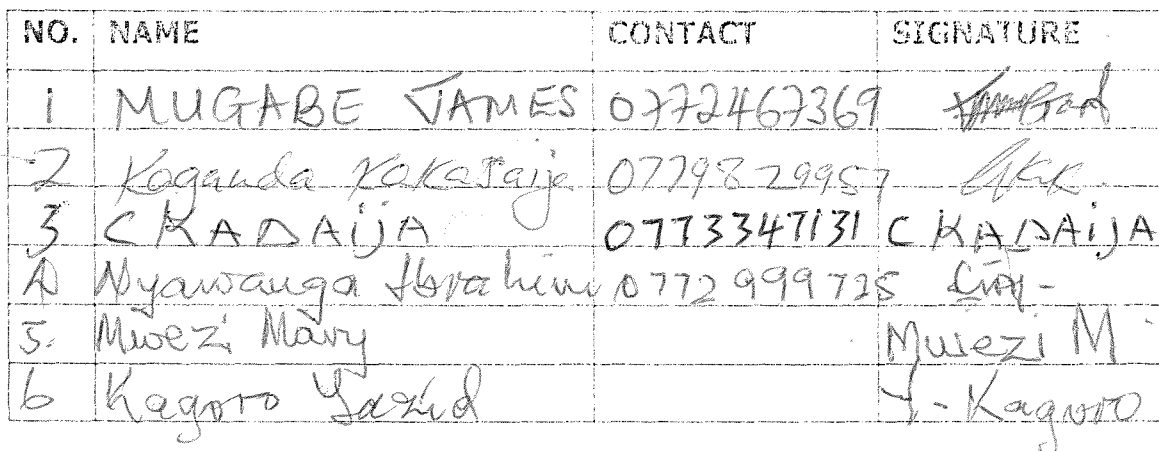 NO. NAME CONTACT SIGNATURE
1 MUGABE JAMES 0772467369
2 Kaganda Kakasaija 0779829957
3 CKADAijA 0773347131 CKADAijA
4 Nyawanga Ibrahim 0772999725
5. Mwezi Mary Mwezi M
6 Kagoro Yazid Y-Kagoro